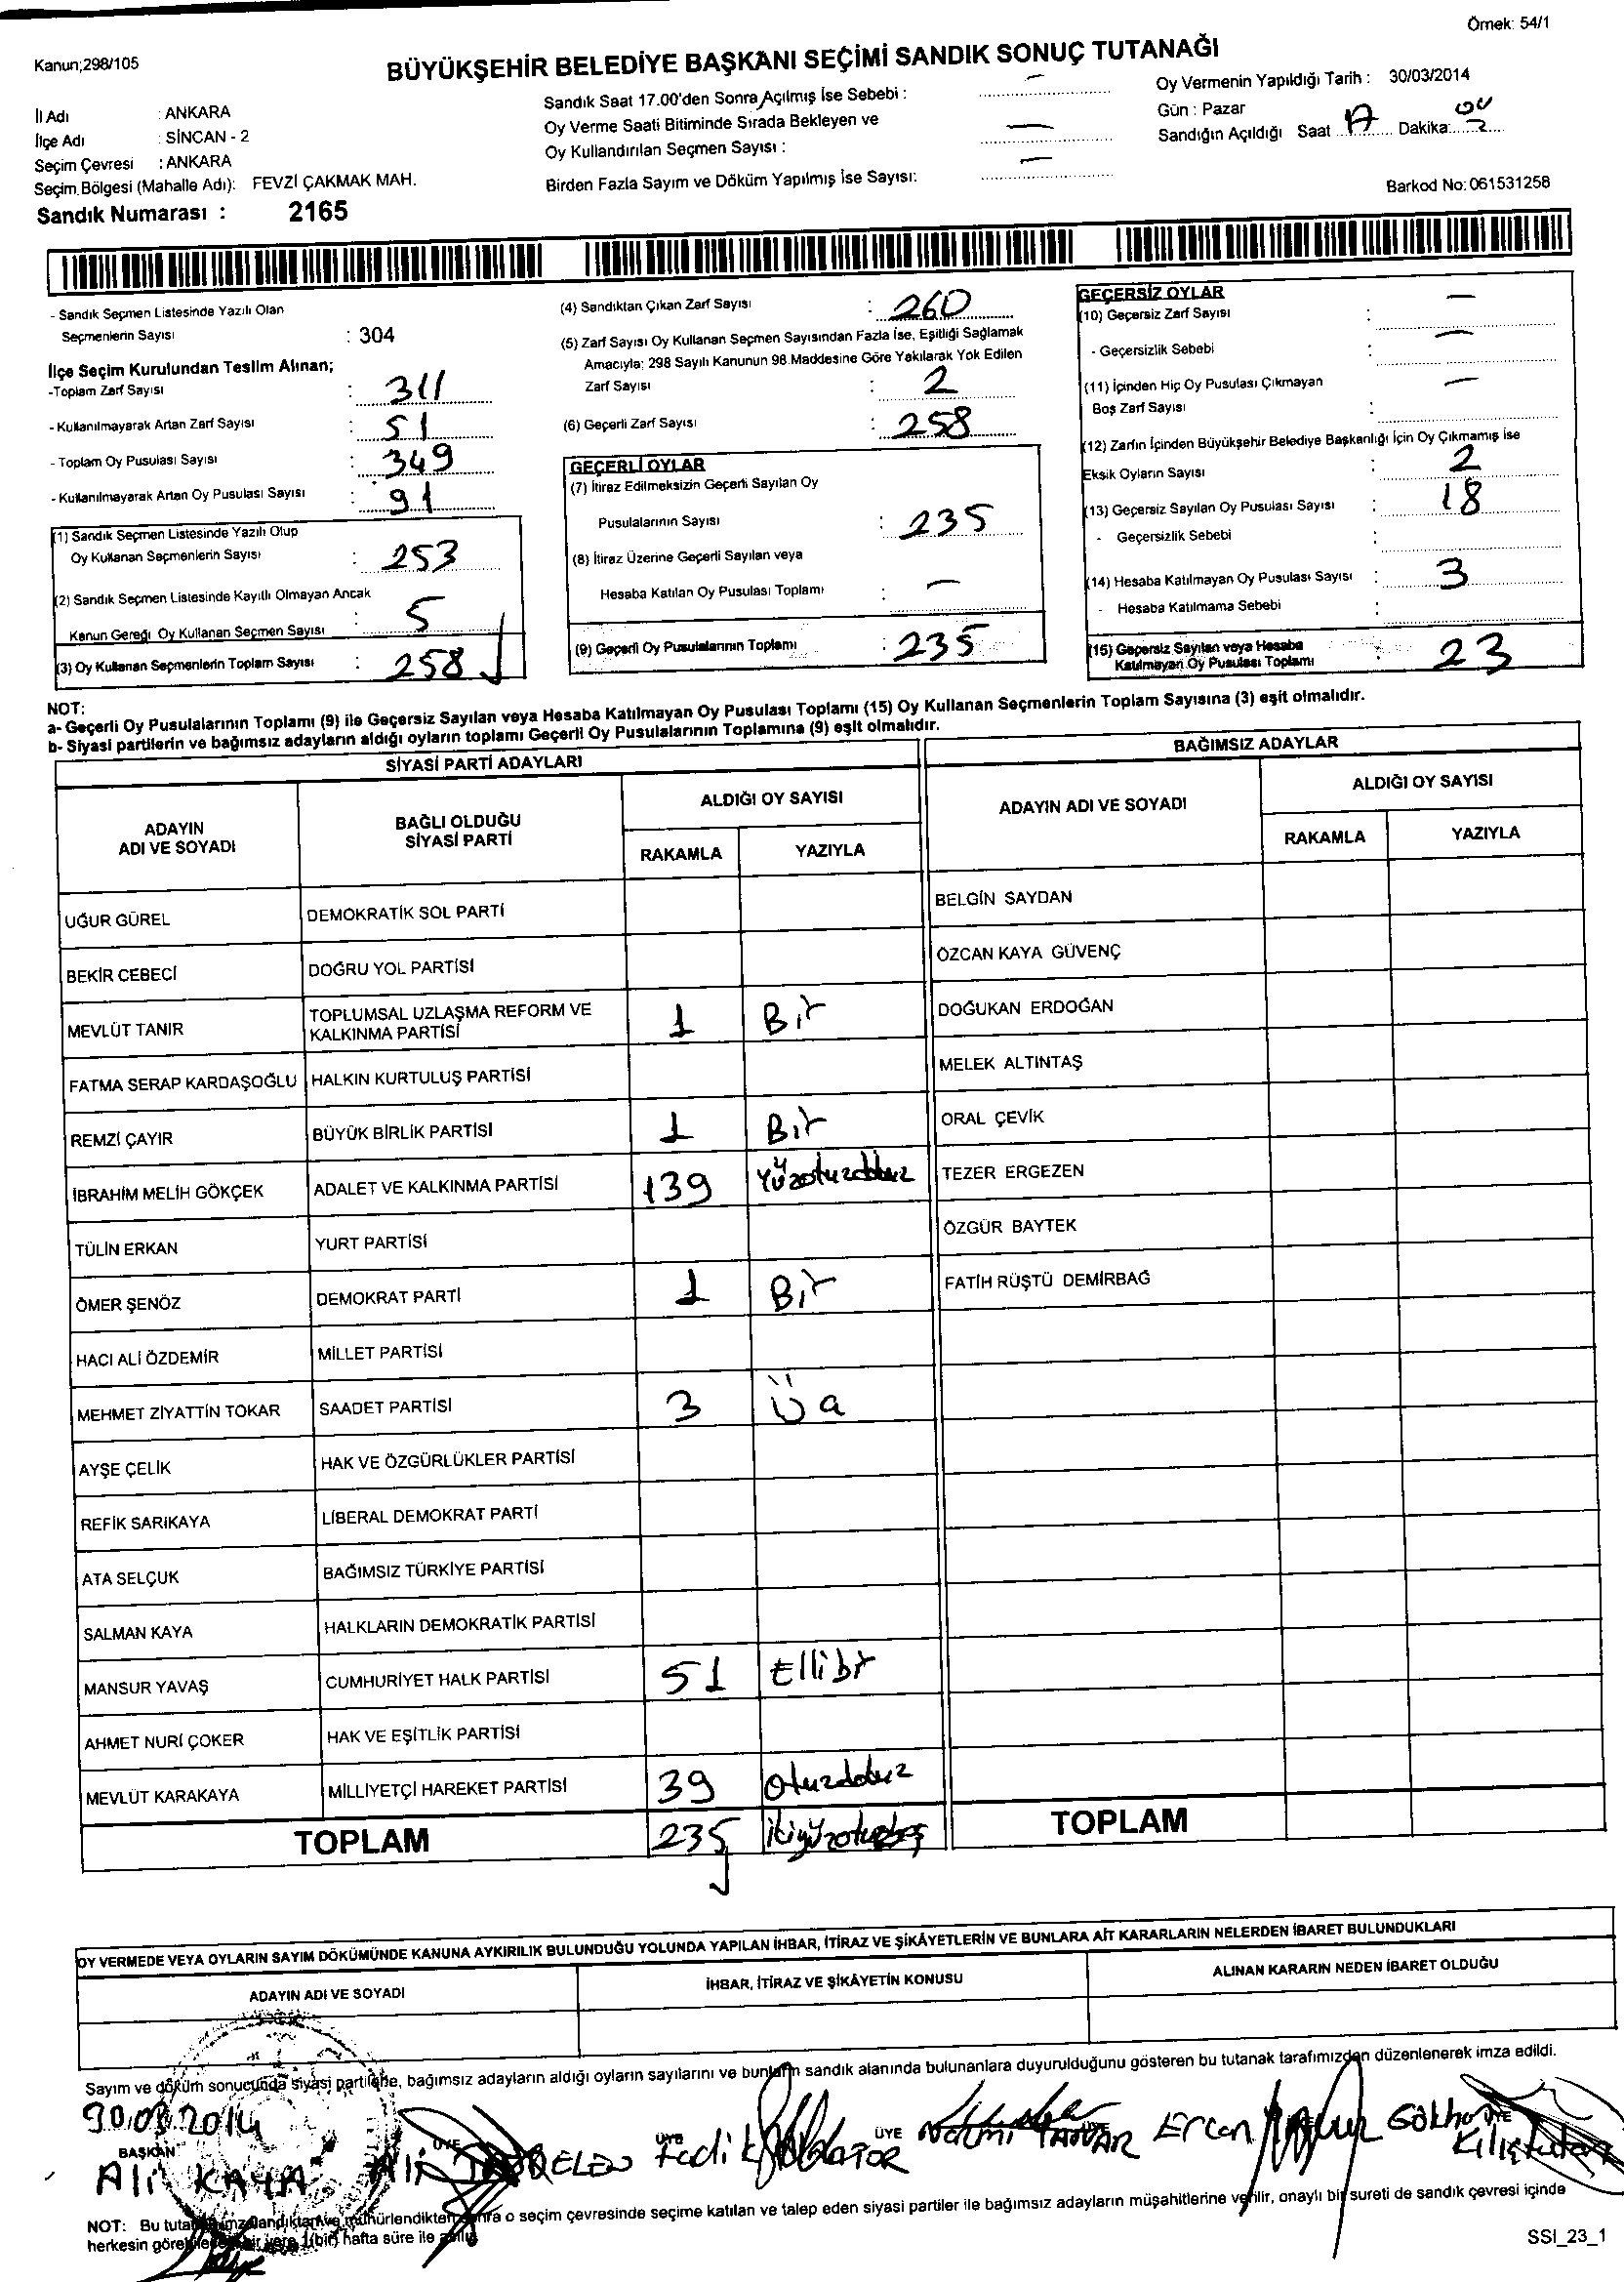 Örnek: 54/1
Kanun;298/105
BÜYÜKŞEHİR BELEDİYE BAŞKANI SEÇİMİ SANDIK SONUÇ TUTANAĞI
İl Adı : ANKARA
İlçe Adı : SİNCAN - 2
Seçim Çevresi : ANKARA
Seçim Bölgesi (Mahalle Adı): FEVZİ ÇAKMAK MAH.
Sandık Numarası : 2165
Sandık Saat 17.00'den Sonra Açılmış İse Sebebi : —
Oy Verme Saati Bitiminde Sırada Bekleyen ve
Oy Kullandırılan Seçmen Sayısı : —
Birden Fazla Sayım ve Döküm Yapılmış İse Sayısı: —
Oy Vermenin Yapıldığı Tarih : 30/03/2014
Gün : Pazar
Sandığın Açıldığı Saat 17 Dakika:
Barkod No: 061531258
- Sandık Seçmen Listesinde Yazılı Olan
Seçmenlerin Sayısı : 304
İlçe Seçim Kurulundan Teslim Alınan;
-Toplam Zarf Sayısı : 311
- Kullanılmayarak Artan Zarf Sayısı : 51
- Toplam Oy Pusulası Sayısı : 349
- Kullanılmayarak Artan Oy Pusulası Sayısı : 91
(1) Sandık Seçmen Listesinde Yazılı Olup
Oy Kullanan Seçmenlerin Sayısı : 253
(2) Sandık Seçmen Listesinde Kayıtlı Olmayan Ancak
Kanun Gereği Oy Kullanan Seçmen Sayısı : 5
(3) Oy Kullanan Seçmenlerin Toplam Sayısı : 258
(4) Sandıktan Çıkan Zarf Sayısı : 260
(5) Zarf Sayısı Oy Kullanan Seçmen Sayısından Fazla İse, Eşitliği Sağlamak
Amacıyla; 298 Sayılı Kanunun 98.Maddesine Göre Yakılarak Yok Edilen
Zarf Sayısı : 2
(6) Geçerli Zarf Sayısı : 258
GEÇERLİ OYLAR
(7) İtiraz Edilmeksizin Geçerli Sayılan Oy
Pusulalarının Sayısı : 235
(8) İtiraz Üzerine Geçerli Sayılan veya
Hesaba Katılan Oy Pusulası Toplamı : —
(9) Geçerli Oy Pusulalarının Toplamı : 235
GEÇERSİZ OYLAR
(10) Geçersiz Zarf Sayısı : —
- Geçersizlik Sebebi : —
(11) İçinden Hiç Oy Pusulası Çıkmayan
Boş Zarf Sayısı : —
(12) Zarfın İçinden Büyükşehir Belediye Başkanlığı İçin Oy Çıkmamış İse
Eksik Oyların Sayısı : 2
(13) Geçersiz Sayılan Oy Pusulası Sayısı : 18
- Geçersizlik Sebebi :
(14) Hesaba Katılmayan Oy Pusulası Sayısı : 3
- Hesaba Katılmama Sebebi :
(15) Geçersiz Sayılan veya Hesaba
Katılmayan Oy Pusulası Toplamı : 23
NOT:
a- Geçerli Oy Pusulalarının Toplamı (9) ile Geçersiz Sayılan veya Hesaba Katılmayan Oy Pusulası Toplamı (15) Oy Kullanan Seçmenlerin Toplam Sayısına (3) eşit olmalıdır.
b- Siyasi partilerin ve bağımsız adayların aldığı oyların toplamı Geçerli Oy Pusulalarının Toplamına (9) eşit olmalıdır.
SİYASİ PARTİ ADAYLARI
ADAYIN ADI VE SOYADI BAĞLI OLDUĞU SİYASİ PARTİ ALDIĞI OY SAYISI
RAKAMLA YAZIYLA
UĞUR GÜREL DEMOKRATİK SOL PARTİ
BEKİR CEBECİ DOĞRU YOL PARTİSİ
MEVLÜT TANIR TOPLUMSAL UZLAŞMA REFORM VE KALKINMA PARTİSİ 1 Bir
FATMA SERAP KARDAŞOĞLU HALKIN KURTULUŞ PARTİSİ
REMZİ ÇAYIR BÜYÜK BİRLİK PARTİSİ 1 Bir
İBRAHİM MELİH GÖKÇEK ADALET VE KALKINMA PARTİSİ 139 Yüzotuzdokuz
TÜLİN ERKAN YURT PARTİSİ
ÖMER ŞENÖZ DEMOKRAT PARTİ 1 Bir
HACI ALİ ÖZDEMİR MİLLET PARTİSİ
MEHMET ZİYATTİN TOKAR SAADET PARTİSİ 3 Üç
AYŞE ÇELİK HAK VE ÖZGÜRLÜKLER PARTİSİ
REFİK SARIKAYA LİBERAL DEMOKRAT PARTİ
ATA SELÇUK BAĞIMSIZ TÜRKİYE PARTİSİ
SALMAN KAYA HALKLARIN DEMOKRATİK PARTİSİ
MANSUR YAVAŞ CUMHURİYET HALK PARTİSİ 51 Ellibir
AHMET NURİ ÇOKER HAK VE EŞİTLİK PARTİSİ
MEVLÜT KARAKAYA MİLLİYETÇİ HAREKET PARTİSİ 39 otuzdokuz
TOPLAM 235 ikiyüzotuzbeş
BAĞIMSIZ ADAYLAR
ADAYIN ADI VE SOYADI ALDIĞI OY SAYISI
RAKAMLA YAZIYLA
BELGİN SAYDAN
ÖZCAN KAYA GÜVENÇ
DOĞUKAN ERDOĞAN
MELEK ALTINTAŞ
ORAL ÇEVİK
TEZER ERGEZEN
ÖZGÜR BAYTEK
FATİH RÜŞTÜ DEMİRBAĞ
TOPLAM
OY VERMEDE VEYA OYLARIN SAYIM DÖKÜMÜNDE KANUNA AYKIRILIK BULUNDUĞU YOLUNDA YAPILAN İHBAR, İTİRAZ VE ŞİKÂYETLERİN VE BUNLARA AİT KARARLARIN NELERDEN İBARET BULUNDUKLARI
ADAYIN ADI VE SOYADI İHBAR, İTİRAZ VE ŞİKÂYETİN KONUSU ALINAN KARARIN NEDEN İBARET OLDUĞU
Sayım ve döküm sonucunda siyasi partilerle, bağımsız adayların aldığı oyların sayılarını ve bunların sandık alanında bulunanlara duyurulduğunu gösteren bu tutanak tarafımızdan düzenlenerek imza edildi.
30.03.2014
BAŞKAN ÜYE ÜYE ÜYE ÜYE
Ali KAYA Ali Ercan Gökhan Kılıçtutan
NOT: Bu tutanak imzalandıktan ve mühürlendikten sonra o seçim çevresinde seçime katılan ve talep eden siyasi partiler ile bağımsız adayların müşahitlerine verilir, onaylı bir sureti de sandık çevresi içinde
herkesin görebileceği bir yere 1(bir) hafta süre ile asılır.
SSİ_23_1